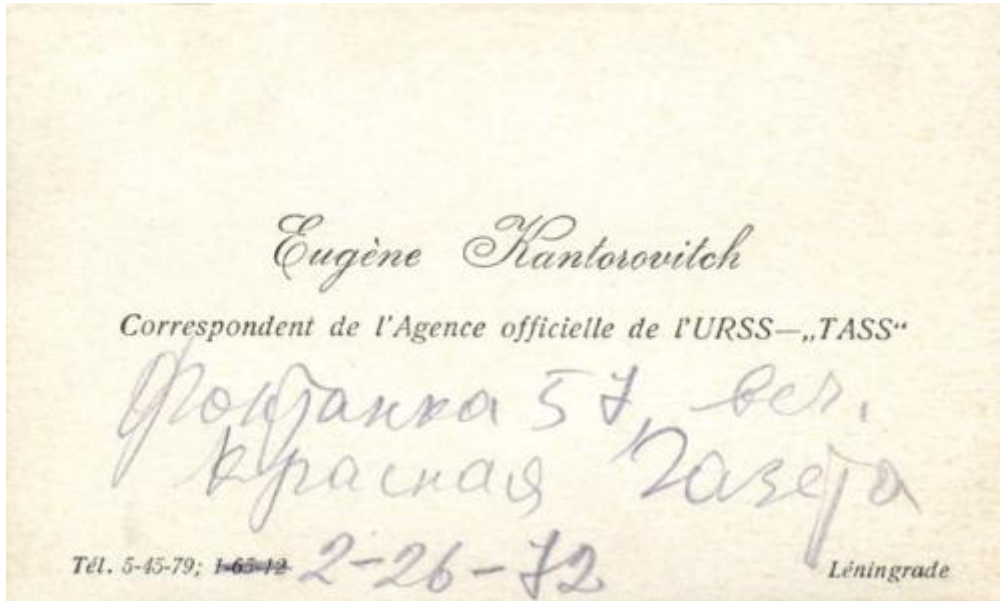 Eugène Kantorovitch
Correspondent de l'Agence officielle de l'URSS—„TASS“
Фонтанка 57, веч.
Красная Газета
Tél. 5-45-79; 1-65-12 2-26-72 Léningrade